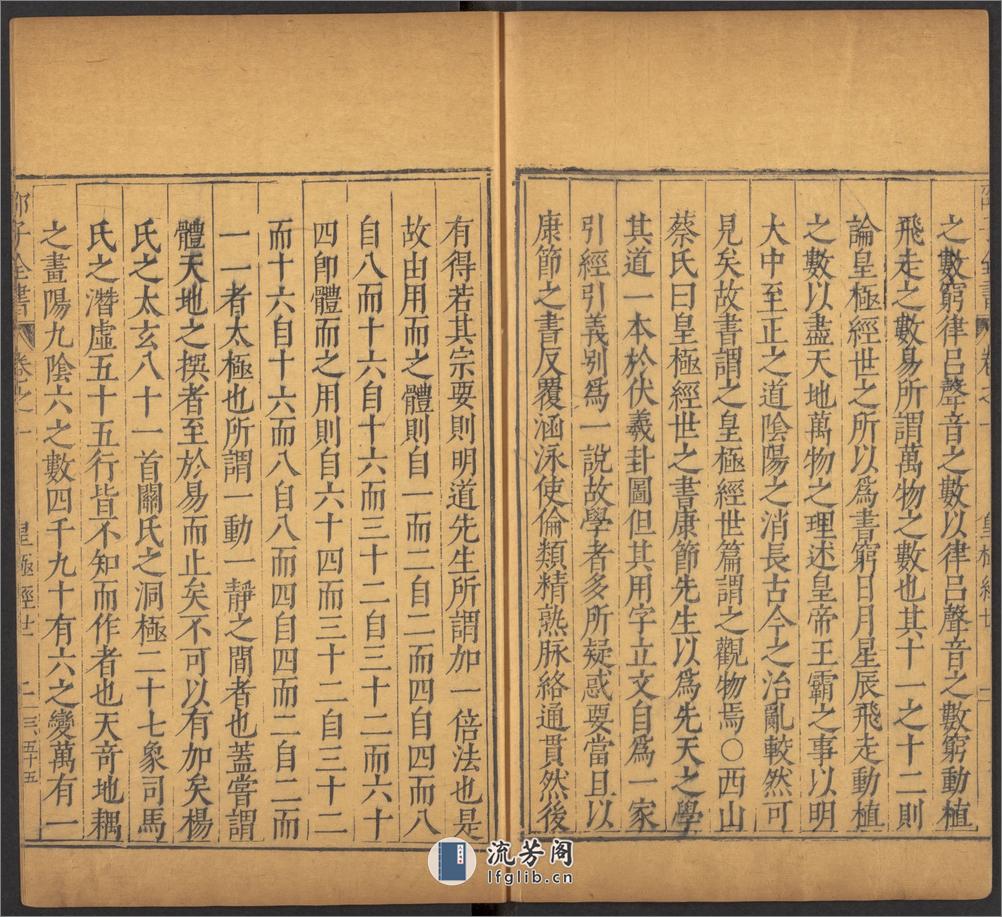 之數窮律呂聲音之數以律呂聲音之數窮動植
飛走之數易所謂萬物之數也其十一之十二則
論皇極經世之所以爲書窮日月星辰飛走動植
之數以盡天地萬物之理述皇帝王霸之事以明
大中至正之道陰陽之消長古今之治亂較然可
見矣故書謂之皇極經世篇謂之觀物焉○西山
蔡氏曰皇極經世之書康節先生以爲先天之學
其道一本於伏羲卦圖但其用字立文自爲一家
引經引義別爲一說故學者多所疑惑要當且以
康節之書反覆涵泳使倫類精熟脉絡通貫然後
有得若其宗要則明道先生所謂加一倍法也是
故由用而之體則自一而二自二而四自四而八
自八而十六自十六而三十二自三十二而六十
四卽體而之用則自六十四而三十二自三十二
而十六自十六而八自八而四自四而二自二而
一一者太極也所謂一動一靜之間者也蓋嘗謂
體天地之撰者至於易而止矣不可以有加矣楊
氏之太玄八十一首關氏之洞極二十七象司馬
氏之潛虛五十五行皆不知而作者也天奇地耦
之畫陽九陰六之數四千九十有六之變萬有一
邵子全書 卷之一 皇極經世 二
流芳阁
lfglib.cn